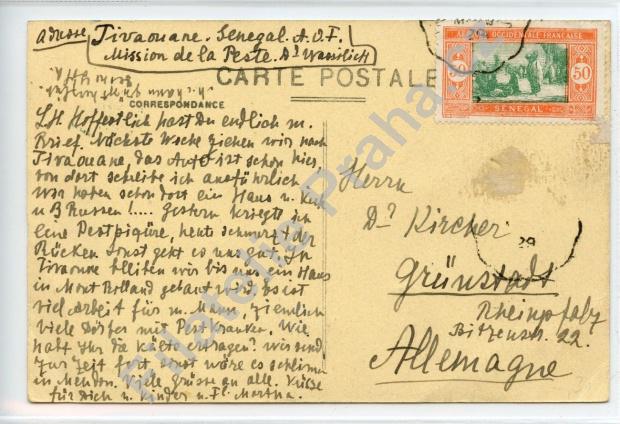 adresse Tivaouane. Senegal. A.O.F.
Mission de la Peste. Dr Wassilieff
CARTE POSTALE
CORRESPONDANCE
L.H. Hoffentlich hast Du endlich m.
Brief. Nächste Woche ziehen wir nach
Tivaouane, das Auto ist schon hier,
von dort schreibe ich ausführlich
Wir haben schon dort ein Haus u. Kuh
u 3 Russen !.... Gestern kriegte ich
eine Pestpiqüre, heute schmerzt der
Rücken sonst geht es uns gut. In
Tivaouane bleiben wir bis uns ein Haus
in Mont Rolland gebaut wird. Es ist
viel Arbeit für m. Mann, ziemlich
viele Dörfer mit Pestkranken. Wie
habt Ihr die Kälte ertragen? Wir sind
zur Zeit fort sonst wäre es schlimm
in Meudon. Viele Grüsse an alle. Küße
für Dich u. Kinder u. Fl. Martha.
AFRIQUE OCCIDENTALE FRANÇAISE
50
50
SÉNÉGAL
29
Herrn
Dr Kircher
29
Grünstadt
Rheinpfalz
Bitzenstr. 22.
Allemagne
Filatelie Praha